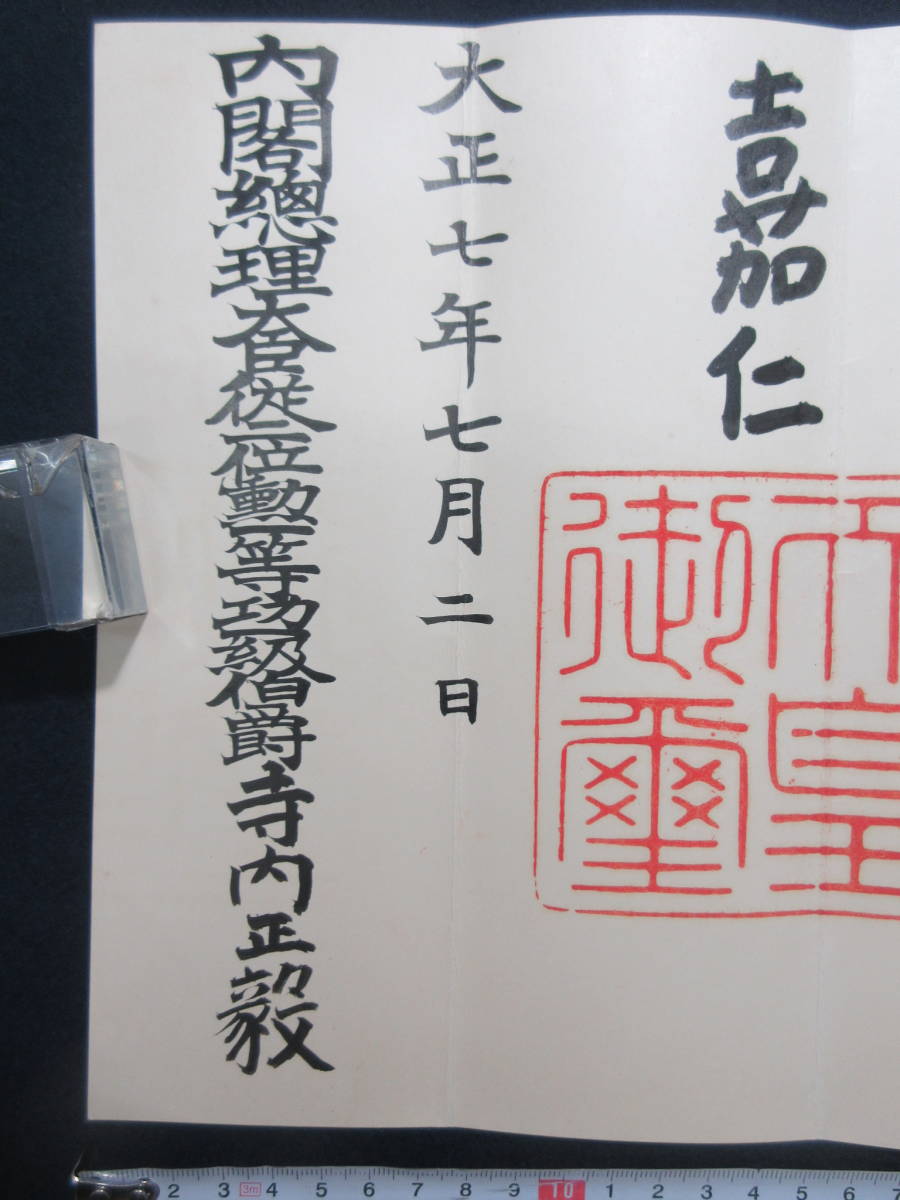 嘉仁
天皇
御璽
大正七年七月二日
內閣總理大臣從二位勳一等功一級伯爵寺內正毅
2 3 3m 4 5 6 7 8 9 10 1 2 3 4 5 6 7